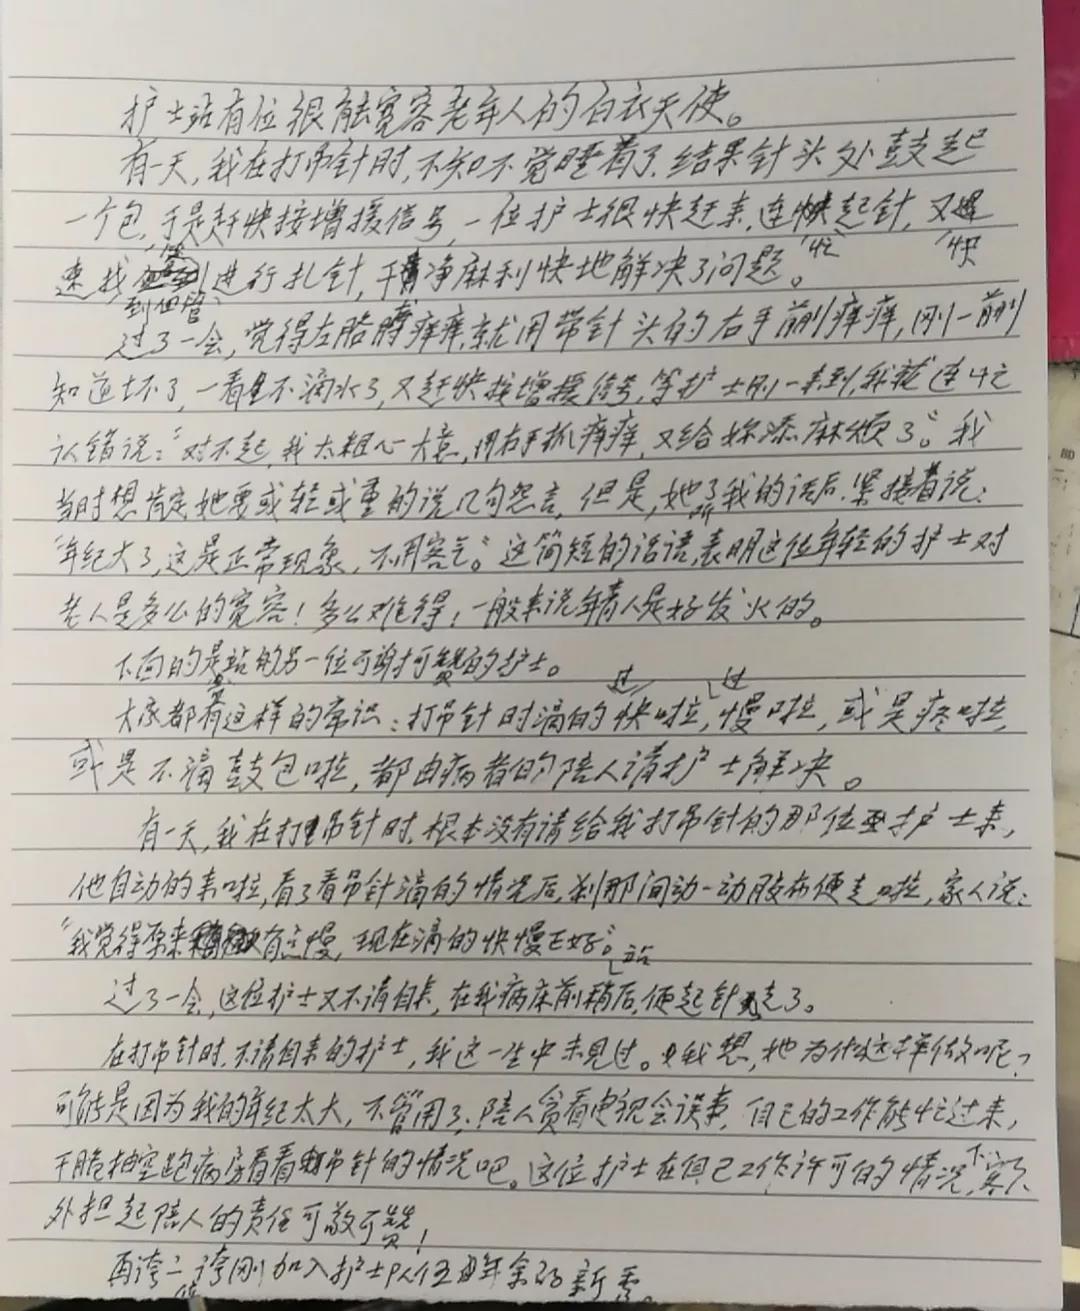 护士站有位很能宽容老年人的白衣天使。
有一天,我在打吊针时,不知不觉睡着了,结果针头处鼓起
一个包,于是赶快按增援信号,一位护士很快赶来,连忙起针,又快
速找到血管进行扎针,干净麻利快地解决了问题。
过了一会,觉得左胳膊痒痒,就用带针头的右手前刂痒痒,刚一前刂
知道坏了,一看是不滴水了,又赶快按增援信号,等护士刚一来到,我就连忙
认错说:“对不起,我太粗心大意,用右手抓痒痒,又给妳添麻烦了。”我
当时想肯定她要或轻或重的说几句怨言,但是,她听了我的话后,紧接着说:
“年纪大了,这是正常现象,不用客气。”这简短的话语,表明这位年轻的护士对
老人是多么的宽容!多么难得!一般来说年青人是好发火的。
下面的是站的另一位可谢可赞的护士。
大家都有这样的常识:打吊针时滴的过快啦,过慢啦,或是疼啦,
或是不滴鼓包啦,都由病者的陪人请护士解决。
有一天,我在打吊针时,根本没有请给我打吊针的那位护士来,
他自动的来啦,看了看吊针滴的情况后,刹那间动一动胶布便走啦,家人说:
“我觉得原来有点慢,现在滴的快慢正好。”
过了一会,这位护士又不请自来,在我病床前稍站后,便起针走了。
在打吊针时,不请自来的护士,我这一生中未见过。我想,她为什么这样做呢?
可能是因为我的年纪太大,不管用了,陪人贪看电视会误事,自己的工作能忙过来,
干脆抽空跑病房看看吊针的情况吧。这位护士在自己工作许可的情况下,
外担起陪人的责任可敬可赞!
再夸一夸刚加入护士队伍年余的新秀。